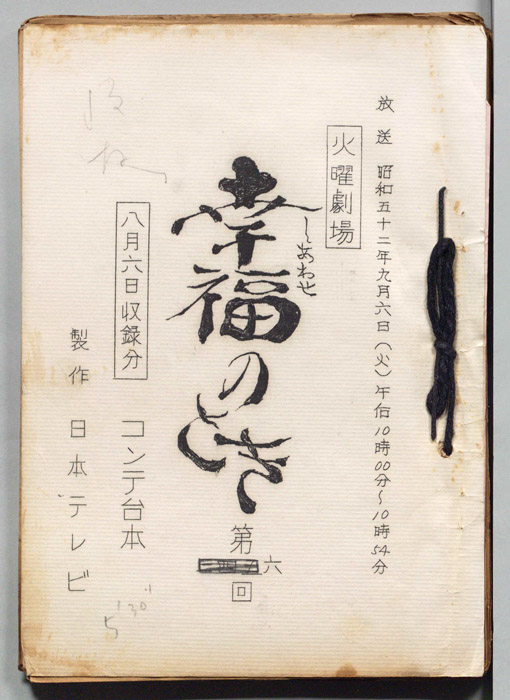 放送 昭和五十二年九月六日（火）午后10時00分〜10時54分
火曜劇場
しあわせ
幸福のとき
第六回
八月六日収録分
コンテ台本
製作 日本テレビ